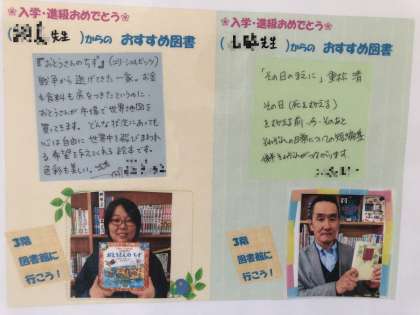 ❀入学・進級おめでとう❀
先生 )からの おすすめ図書
『おとうさんのちず』(ユリ・シュルヴィッツ)
戦争から逃げてきた一家。お金
も食料も底をつきたというのに、
おとうさんが市場で世界地図を
買ってきます。どんな状況にあっても
心は自由に世界中を飛びまわれ
る希望を与えてくれる絵本です。
色彩も美しい。
おとうさんの ちず
3階
図書館に
行こう!
❀入学・進級おめでとう❀
先生 )からの おすすめ図書
「その日のまえに」重松 清
その日(死を迎える)
を迎える前・今・そのあと
3階
図書館に
行こう!